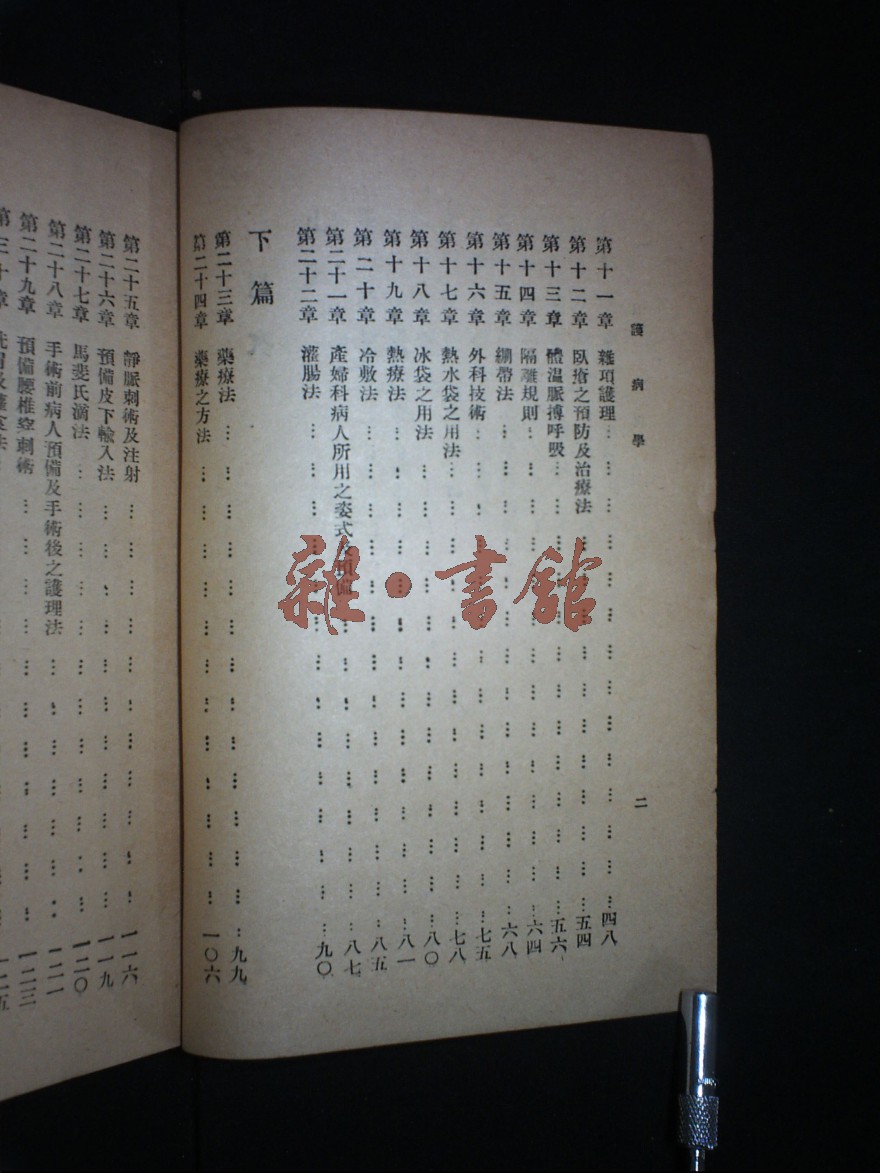 護病學
二
第十一章 雜項護理……四八
第十二章 臥瘡之預防及治療法……五四
第十三章 體温脈搏呼吸……五六
第十四章 隔離規則……六四
第十五章 綳帶法……六八
第十六章 外科技術……七五
第十七章 熱水袋之用法……七八
第十八章 冰袋之用法……八〇
第十九章 熱療法……八一
第二十章 冷敷法……八五
第二十一章 產婦科病人所用之姿式及預備……八七
第二十二章 灌腸法……九〇
下篇
第二十三章 藥療法……九九
第二十四章 藥療之方法……一〇六
第二十五章 靜脈刺術及注射……一一六
第二十六章 預備皮下輸入法……一一九
第二十七章 馬斐氏滴法……一二〇
第二十八章 手術前病人預備及手術後之護理法……一二一
第二十九章 預備腰椎穿刺術……一二三
第三十章
雜·書館